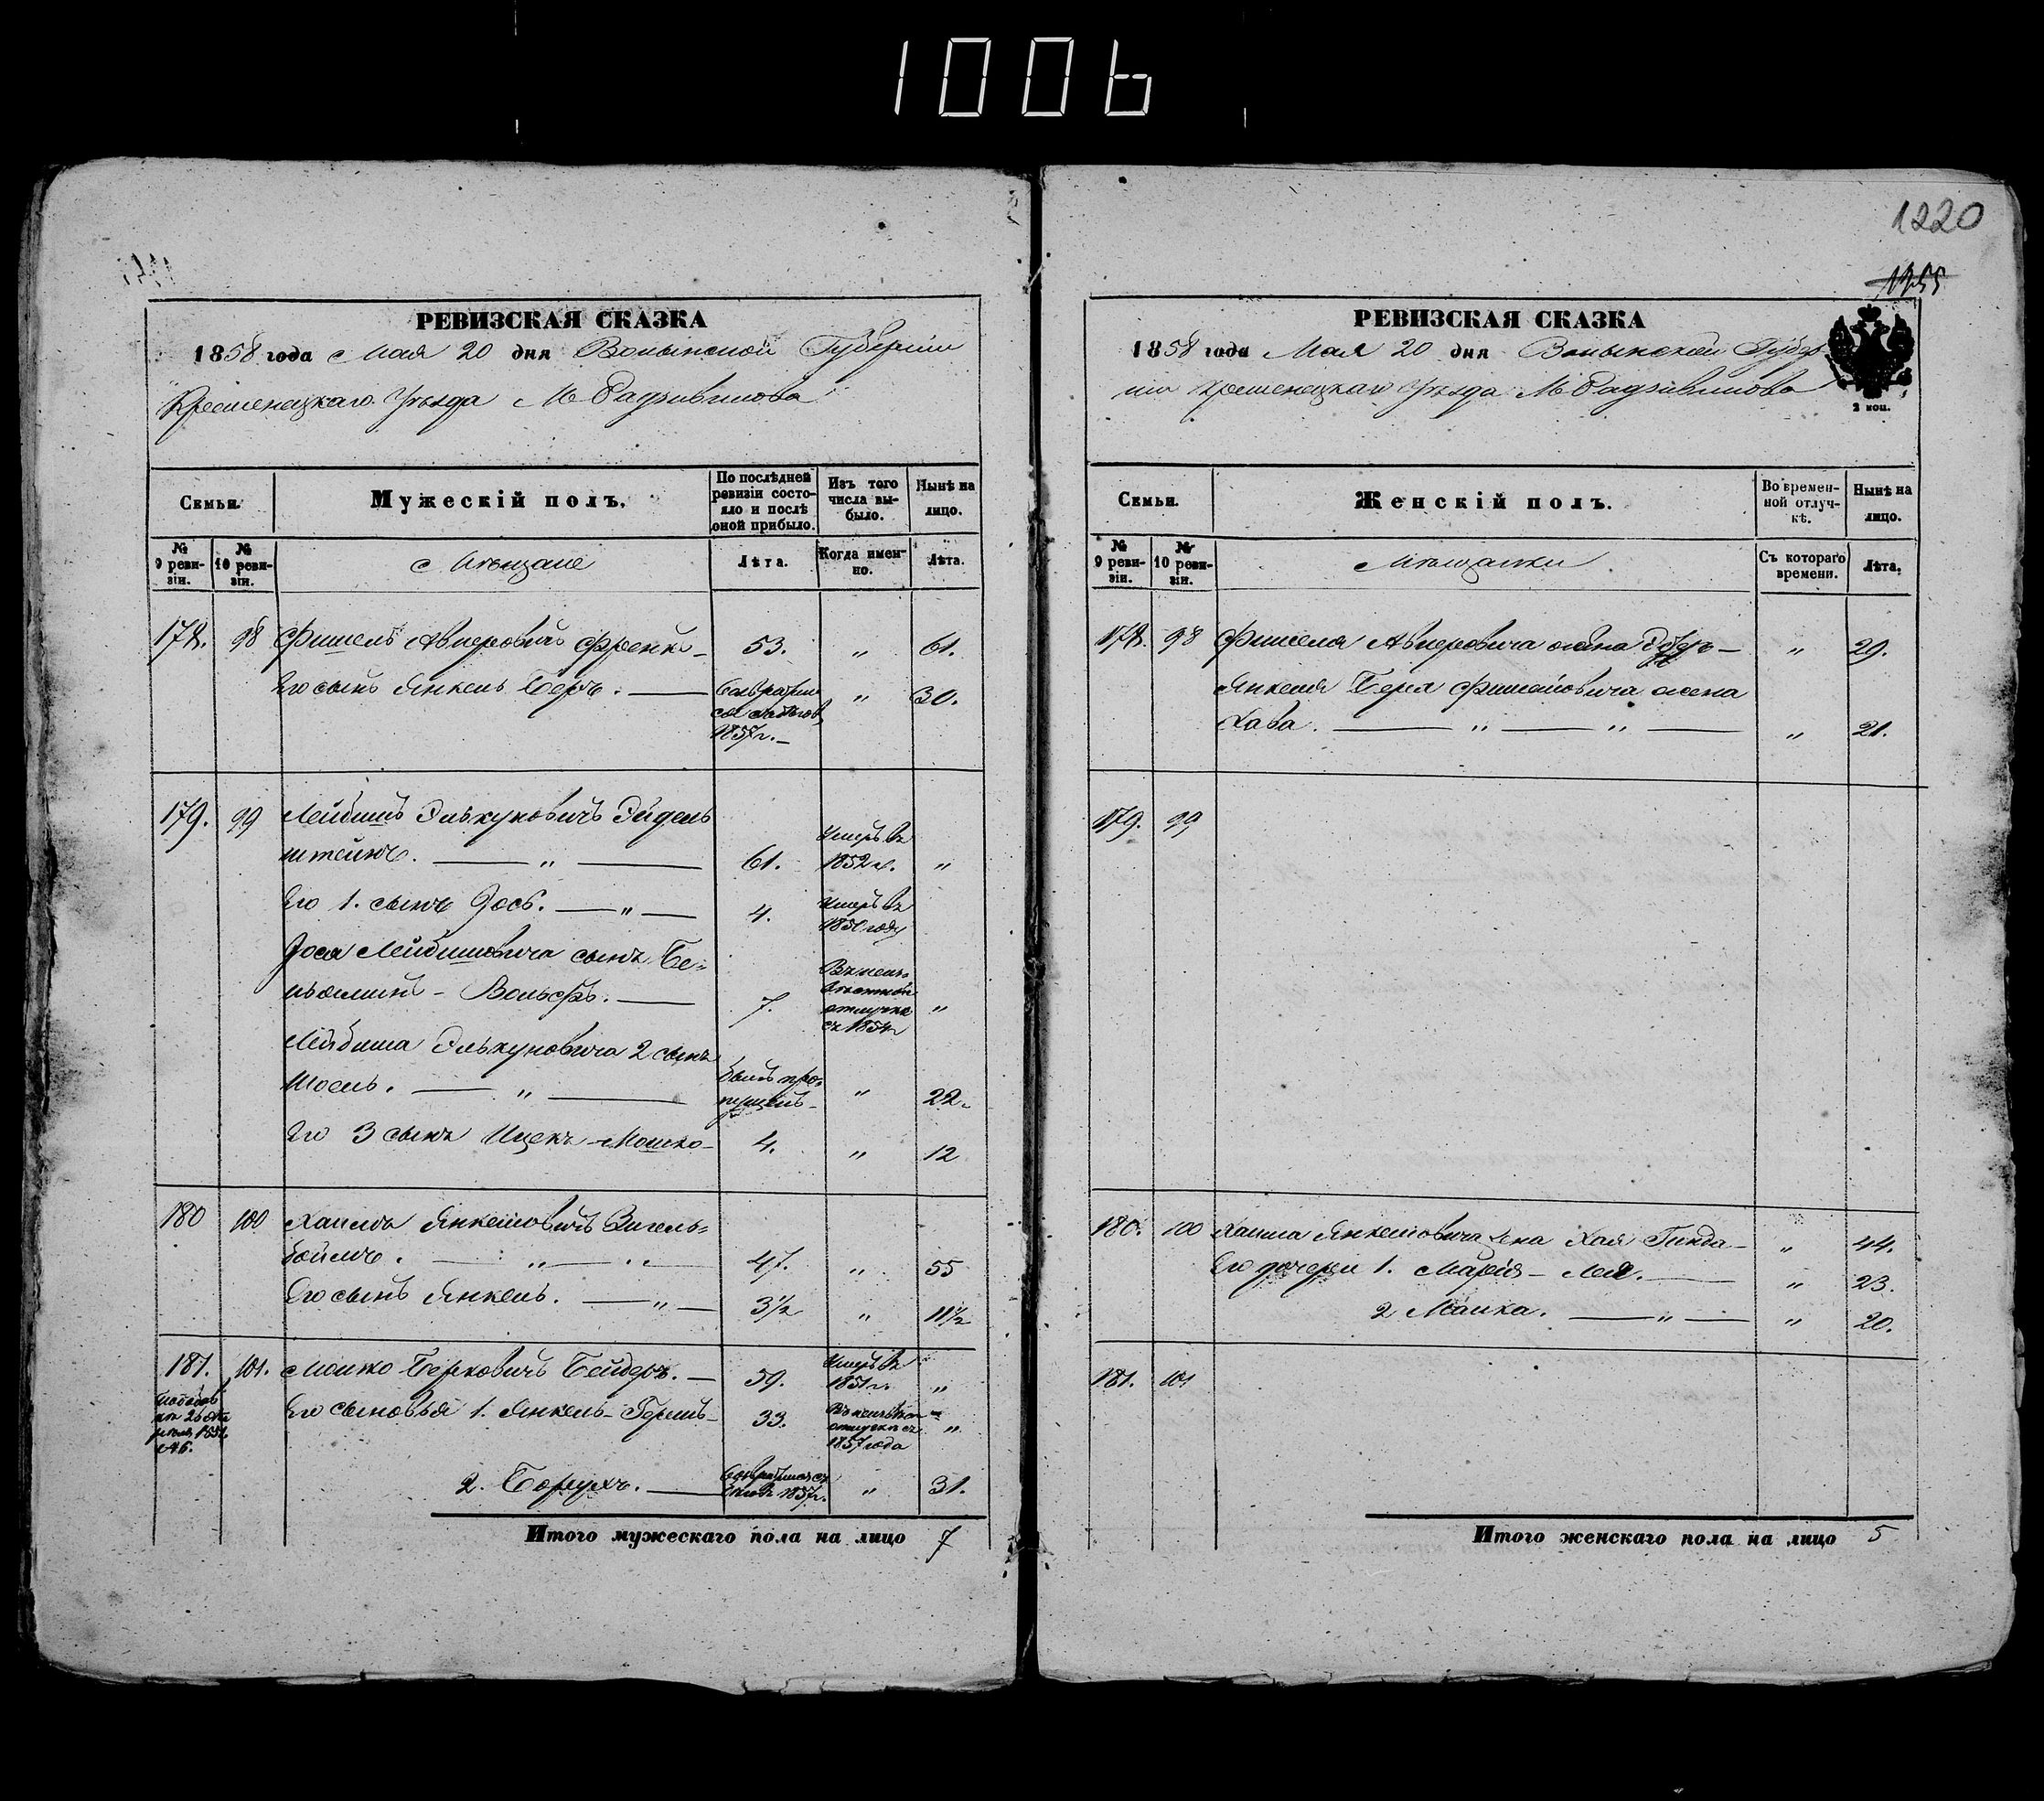 1006
1220
1255
РЕВИЗСКАЯ СКАЗКА
1858 года Мая 20 дня Волынской Губерніи
Кременецкаго Уѣзда М Радзивилова
Семьи.
Мужескій полъ.
По послѣдней ревизіи состояло и послѣ оной прибыло.
Изъ того числа выбыло.
Нынѣ на лицо.
№ 9 ревизіи.
№ 10 ревизіи.
Мѣщане
Лѣта.
Когда именно.
Лѣта.
178. 98 Фишель Авнеровичъ Френкъ 53. „ 61.
Его сынъ Янкель Беръ. „ 30.
1857 г.
179. 99 Лейбишъ Элькуновичъ Эйдель
штейнъ. „ 61. Умеръ въ 1852 г. „
Его 1. сынъ Йосъ. „ 4. Умеръ въ 1850 году
Йося Лейбишовича сынъ Бе-
ньяминъ - Вольфъ. 7. отлучкѣ съ 1854 г „
Лейбиша Элькуновича 2 сынъ
Шоель. „ былъ пропущенъ „ 22.
Его 3 сынъ Ицекъ - Мошко 4. „ 12
180 100 Хаимъ Янкелевичъ Зигель-
боймъ. „ „ 47. „ 55
Его сынъ Янкель. „ 3½ „ 11½
181. 101. Мошко Берковичъ Бейдеръ. 59. Умеръ въ 1851 г. „
Его сыновья 1. Янкель - Гершъ 33. отлучкѣ съ 1857 года „
2. Борухъ. 1857 г. „ 31.
Итого мужескаго пола на лицо 7
РЕВИЗСКАЯ СКАЗКА
1858 года Мая 20 дня Волынской Губер-
ніи Кременецкаго Уѣзда М Радзивилова
2 коп.
Семьи.
Женскій полъ.
Во временной отлучкѣ.
Нынѣ на лицо.
№ 9 ревизіи.
№ 10 ревизіи.
Мѣщанки
Съ котораго времени.
Лѣта.
178. 98 Фишеля Авнеровича жена „ 29.
Янкеля Беря Фишелевича жена
Хава. „ „ „ 21.
179. 99
180. 100 Хаима Янкелевича жена Хая Гинда „ 44.
Его дочери 1. Марія - Лея. „ 23.
2 Малка. „ „ 20.
181. 101
Итого женскаго пола на лицо 5